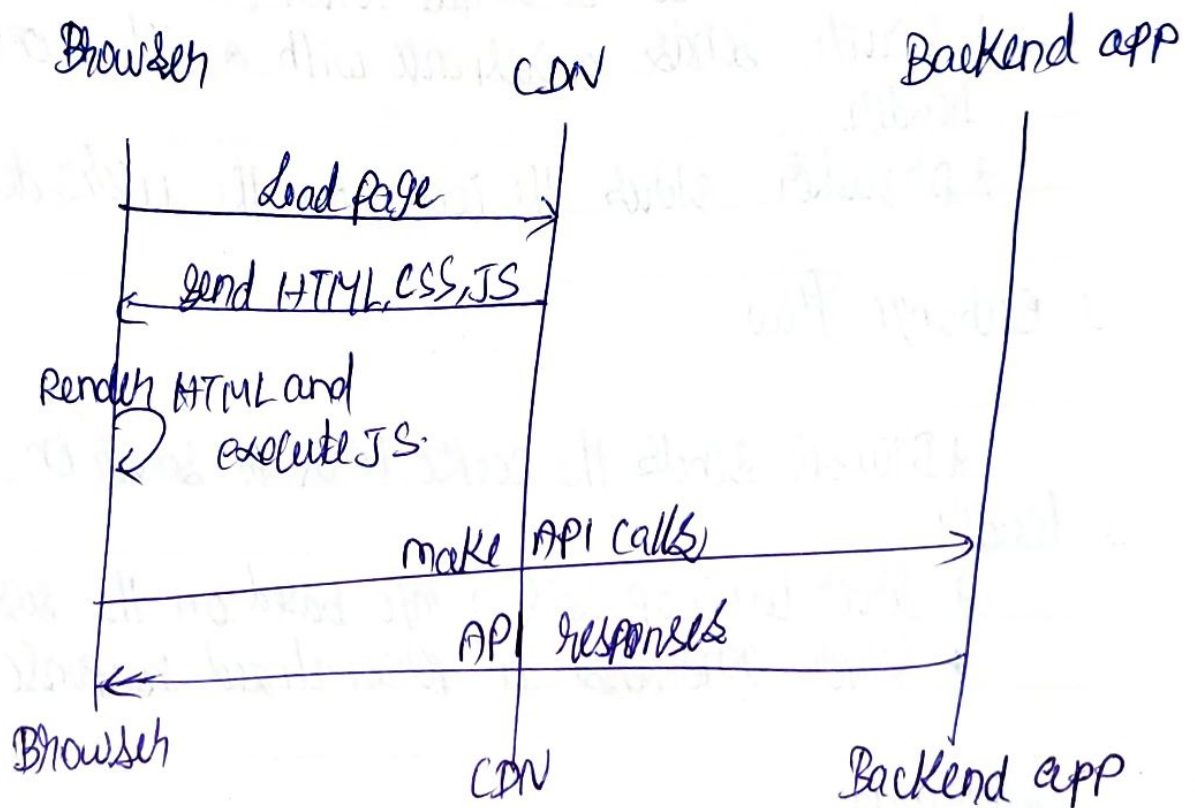 Browser CDN Backend app
Load page
send HTML, CSS, JS
Render HTML and
execute JS.
make API calls
API responses
Browser CDN Backend app